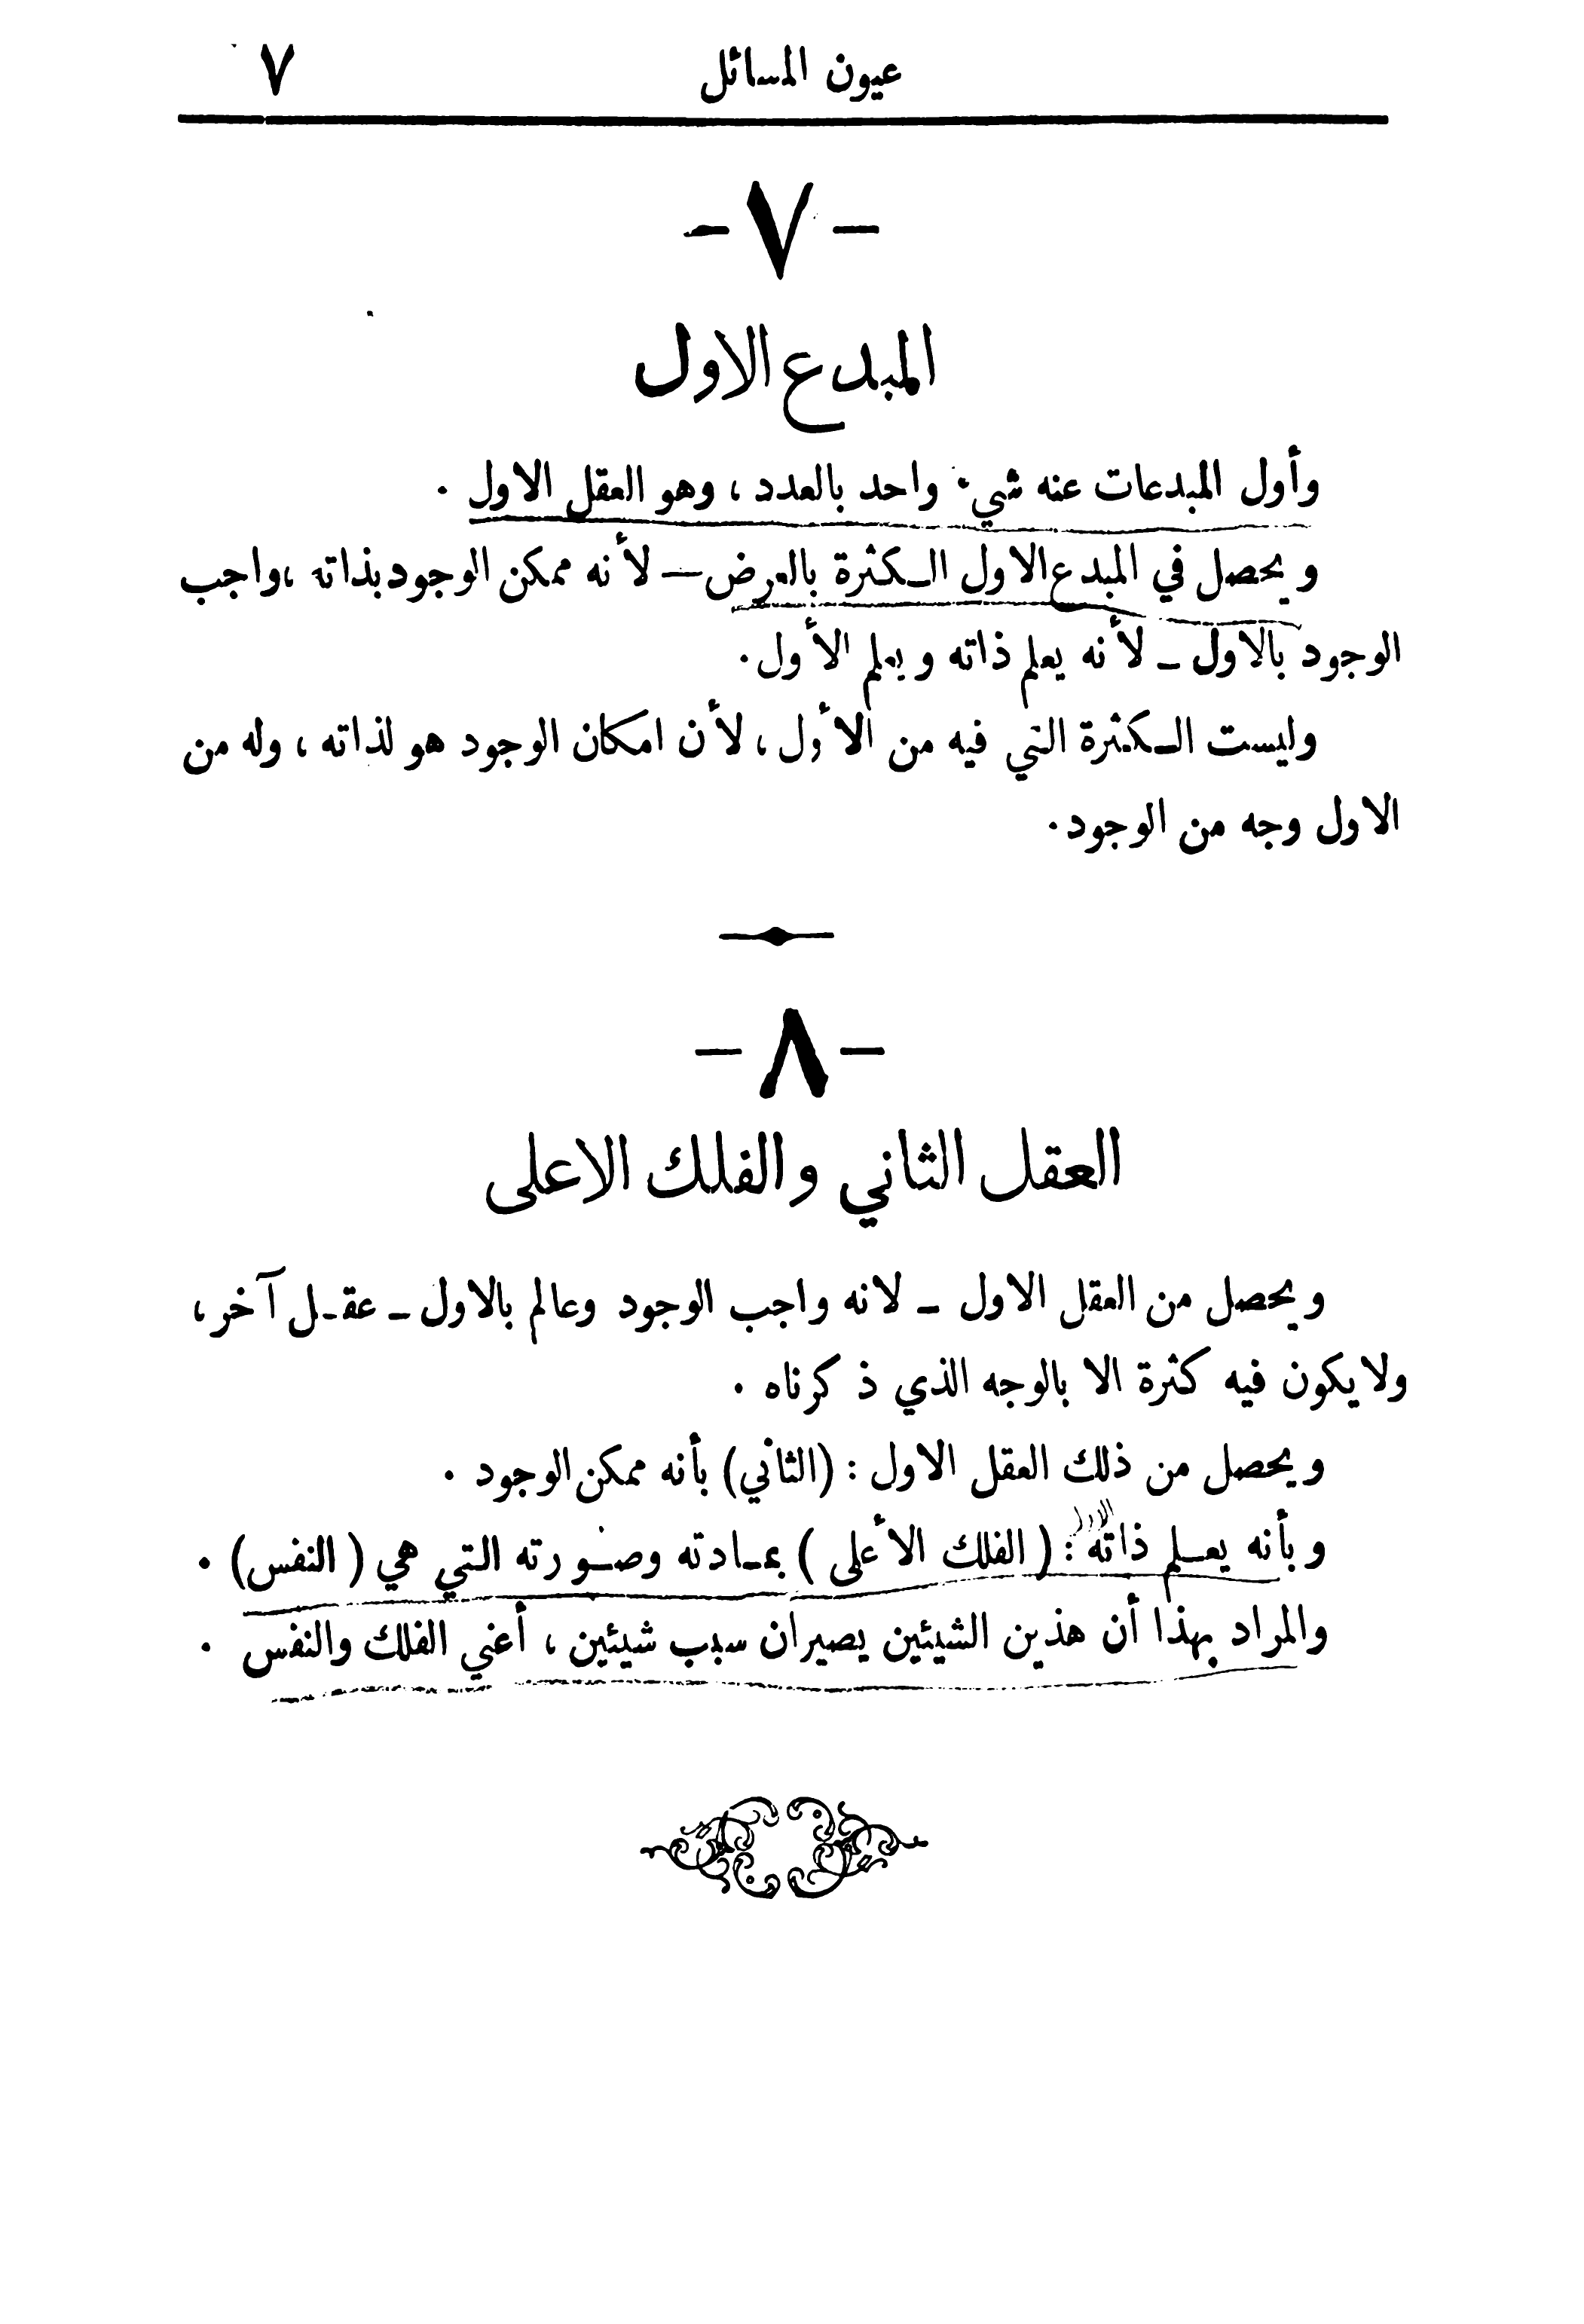 عيون المسائل ٧
- ٧ -
المبدع الاول
وأول المبدعات عنه شيء واحد بالعدد ، وهو العقل الاول .
ويحصل في المبدع الاول الكثرة بالعرض — لأنه ممكن الوجود بذاته ، واجب
الوجود بالاول – لأنه يعلم ذاته ويعلم الأول .
وليست الكثرة التي فيه من الأول ، لأن امكان الوجود هو لذاته ، وله من
الاول وجه من الوجود .
- ٨ -
العقل الثاني والفلك الاعلى
ويحصل من العقل الاول – لانه واجب الوجود وعالم بالاول – عقل آخر ،
ولا يكون فيه كثرة الا بالوجه الذي ذكرناه .
ويحصل من ذلك العقل الاول : (الثاني) بأنه ممكن الوجود .
الاول
وبأنه يعلم ذاته : ( الفلك الأعلى ) بمادته وصورته التي هي ( النفس) .
والمراد بهذا أن هذين الشيئين يصيران سبب شيئين ، أعني الفلك والنفس .